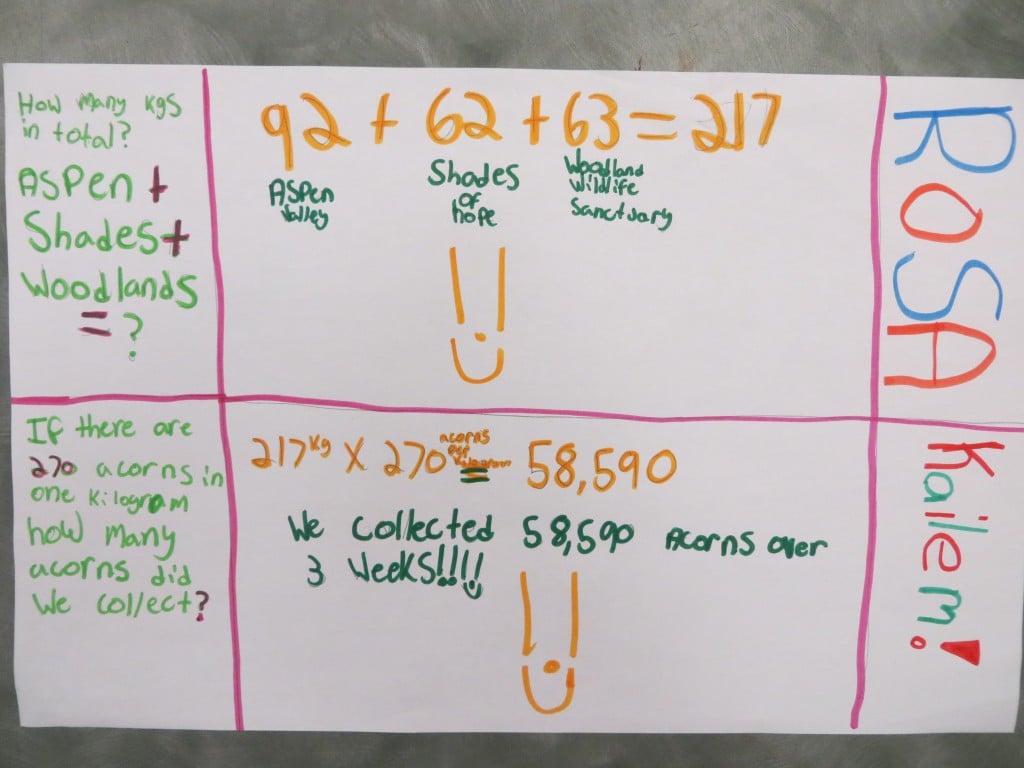 How many kgs
in total?
Aspen +
Shades +
Woodlands
= ?
92 + 62 + 63 = 217
Aspen
Valley
Shades
of
hope
Woodland
Wildlife
Sanctuary
ROSA
If there are
270 acorns in
one kilogram
how many
acorns did
we collect?
217 kg x 270 acorns per kilogram = 58,590
We collected 58,590 acorns over
3 weeks!!!!
Kailem!